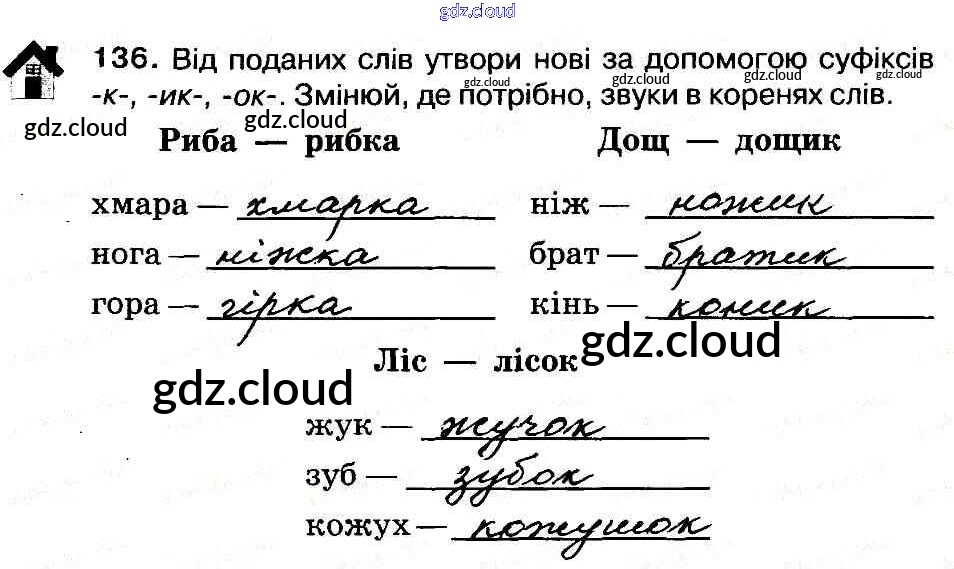 gdz.cloud
gdz.cloud
136. Від поданих слів утвори нові за допомогою суфіксів
gdz.cloud gdz.cloud gdz.cloud
-к-, -ик-, -ок-. Змінюй, де потрібно, звуки в коренях слів.
gdz.cloud gdz.cloud
Риба — рибка Дощ — дощик
хмара — хмарка ніж — ножик
нога — ніжка брат — братик
гора — гірка кінь — коник
Ліс — лісок gdz.cloud
gdz.cloud
жук — жучок
зуб — зубок
кожух — кожушок